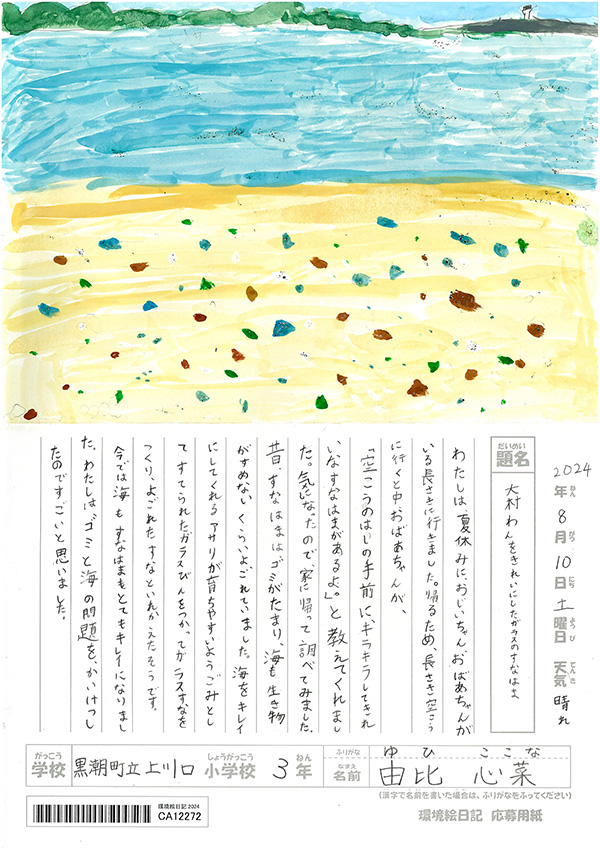 2024年ねん8月がつ10日にち土曜日ようび 天気てんき 晴れ
だいめい
題名
大村わんをきれいにしたガラスのすなはま
わたしは、夏休みに、おじいちゃん、おばあちゃんが
いる長さきに行きました。帰るため、長さき空こう
に行くと中おばあちゃんが、
「空こうのはしの手前に、キラキラしてきれ
いなすなはまがあるよ。」と教えてくれまし
た。気になったので、家に帰って調べてみました。
昔、すなはまはゴミがたまり、海も生き物
がすめないくらいよごれていました。海をキレイ
にしてくれるアサリが育ちやすいようごみとし
てすてられたガラスびんをつかってガラスすなを
つくり、よごれたすなといれかえたそうです。
今では海もすなはまもとてもキレイになりまし
た。わたしは、ゴミと海の問題を、かいけつし
たのですごいと思いました。
がっこう
学校
黒潮町立上川口
しょうがっこう
小学校
3
ねん
年
ふりがな
ゆひ ここな
なまえ
名前
由比 心菜
(漢字で名前を書いた場合は、ふりがなをふってください)
環境絵日記 2024
CA12272
環境絵日記 応募用紙